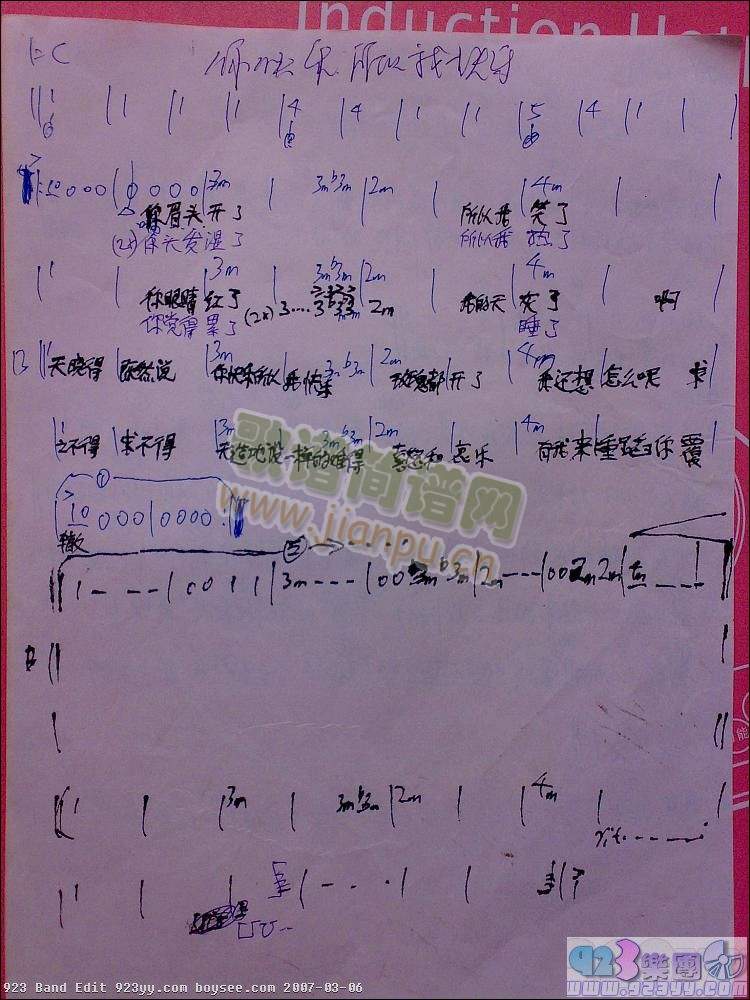 Induction Hot
1=C 你快乐所以我快乐
|| 1 | 1 | 1 | 1 | 4 | 4 | 1 | 1 | 5 | 4 | 1 | |
0 0 0 | 0 0 0 0 | 3m | 3m b3m | 2m | | 4m | |
你眉头开了 所以我笑了
(2x) 你头发湿了 所以我热了
| 1 | | 3m | 3m b3m | 2m | | 4m | |
你眼睛红了 (2x) 3.... 2m 我的天灰了 啊
你觉得累了 睡了
B || 1 | | 3m | 3m b3m | 2m | | 4m | |
天晓得 既然说 你快乐所以我快乐 玫瑰都开了 我还想怎么呢 求
| 1 | | 3m | 3m b3m | 2m | | 4m | |
之不得 求不得 天造地设一样的难得 喜怒和哀乐 有我来重蹈你覆
①
| 1 0 0 0 0 | 0 0 0 0 :||
辙
歌谱简谱网
www.jianpu.cn
② → ...
|| 1 - - - | 0 0 1 1 | 3m - - - | 0 0 3m b3m | 2m - - - | 0 0 2m 2m |
B ||
|| 1 | | 3m | 3m b3m | 2m | | 4m | |
rit. ......
| 1 | | | - . . . | | |
能
923 Band Edit 923yy.com boysee.com 2007-03-06
923樂團
www.923yy.com